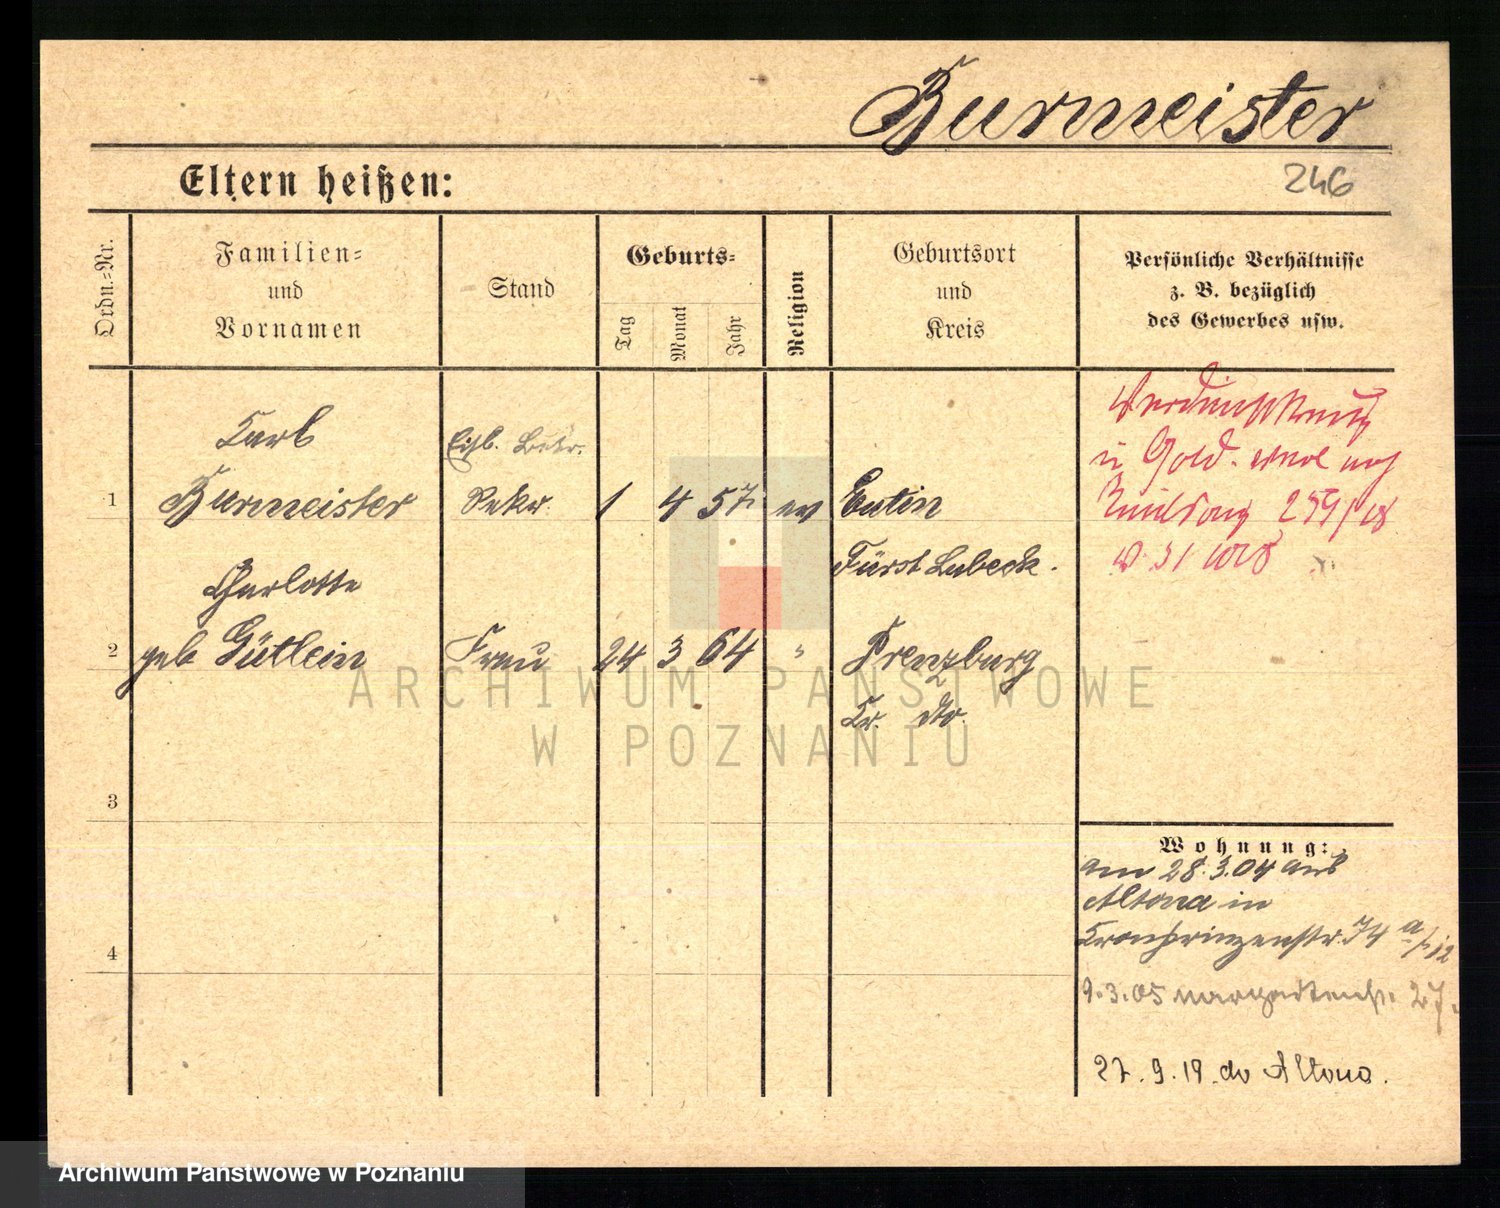 Burmeister
246
Eltern heißen:
Ordn.-Nr.
Familien-
und
Vornamen
Stand
Geburts-
Tag
Monat
Jahr
Religion
Geburtsort
und
Kreis
Persönliche Verhältnisse
z. B. bezüglich
des Gewerbes usw.
Carl
1 Burmeister Sekr. 1 4 57 ev Eutin
Fürst Lubeck.
Charlotte
2 geb Gütlein Frau 24 3 64 " Prenzburg
Kr. do.
Verdienstkreuz
in Gold
3
4
Wohnung:
am 28.3.04 aus
Altona in
Kronprinzenstr. 74 a
9.3.05 Margaretenstr. 27.
27.9.19. do Altona.
ARCHIWUM PAŃSTWOWE
W POZNANIU
Archiwum Państwowe w Poznaniu